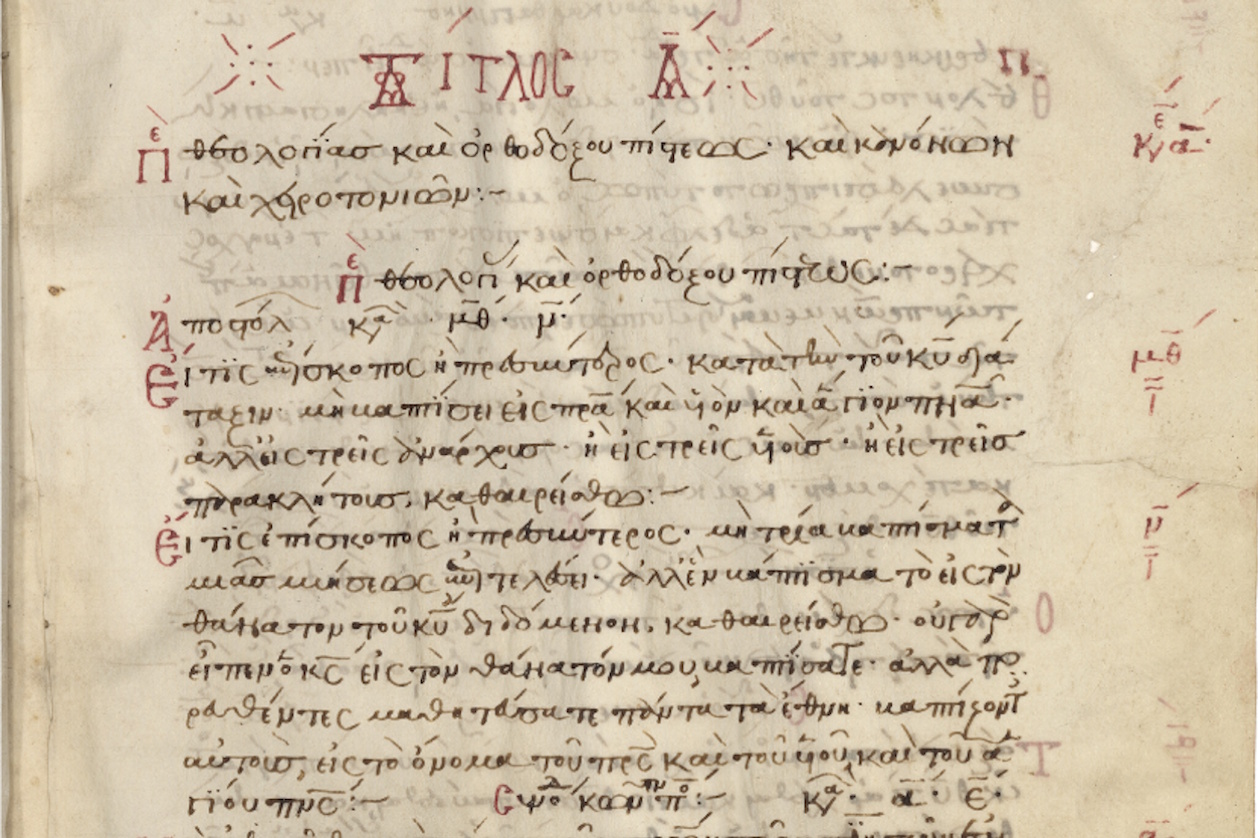 ΤΙΤΛΟΣ Α
Περὶ θεολογίας καὶ ὀρθοδόξου πίστεως· καὶ κανόνων
καὶ χειροτονιῶν:~
Περὶ θεολογί καὶ ὀρθοδόξου πίστεως:~
Ἀποστόλ κ μθ· ν·
Εἴ τις ἐπίσκοπος ἢ πρεσβύτερος· κατὰ τὴν τοῦ κυ διά
ταξιν· μὴ βαπτίσει εἰς πρα καὶ υἱὸν καὶ ἅγιον πνα·
ἀλλ' εἰς τρεῖς ἀνάρχους· ἢ εἰς τρεῖς υἱούς· ἢ εἰς τρεῖς
παρακλήτους, καθαιρείσθω:~
Εἴ τις ἐπίσκοπος ἢ πρεσβύτερος· μὴ τρία βαπτίσματ
μιᾶς μυήσεως ἐπιτελέσει· ἀλλ' ἓν βάπτισμα τὸ εἰς τὸν
θάνατον τοῦ κυ διδόμενον, καθαιρείσθω· οὐ γὰρ
εἶπεν ὁ κς εἰς τὸν θάνατόν μου βαπτίσατε· ἀλλὰ πο
ρευθέντες μαθητεύσατε πάντα τὰ ἔθνη· βαπτίζοντ
αὐτοὺς, εἰς τὸ ὄνομα τοῦ πρς καὶ τοῦ υἱοῦ καὶ τοῦ ἁ
γίου πνς:~ κ α· ε·
κ α·
μθ
ν